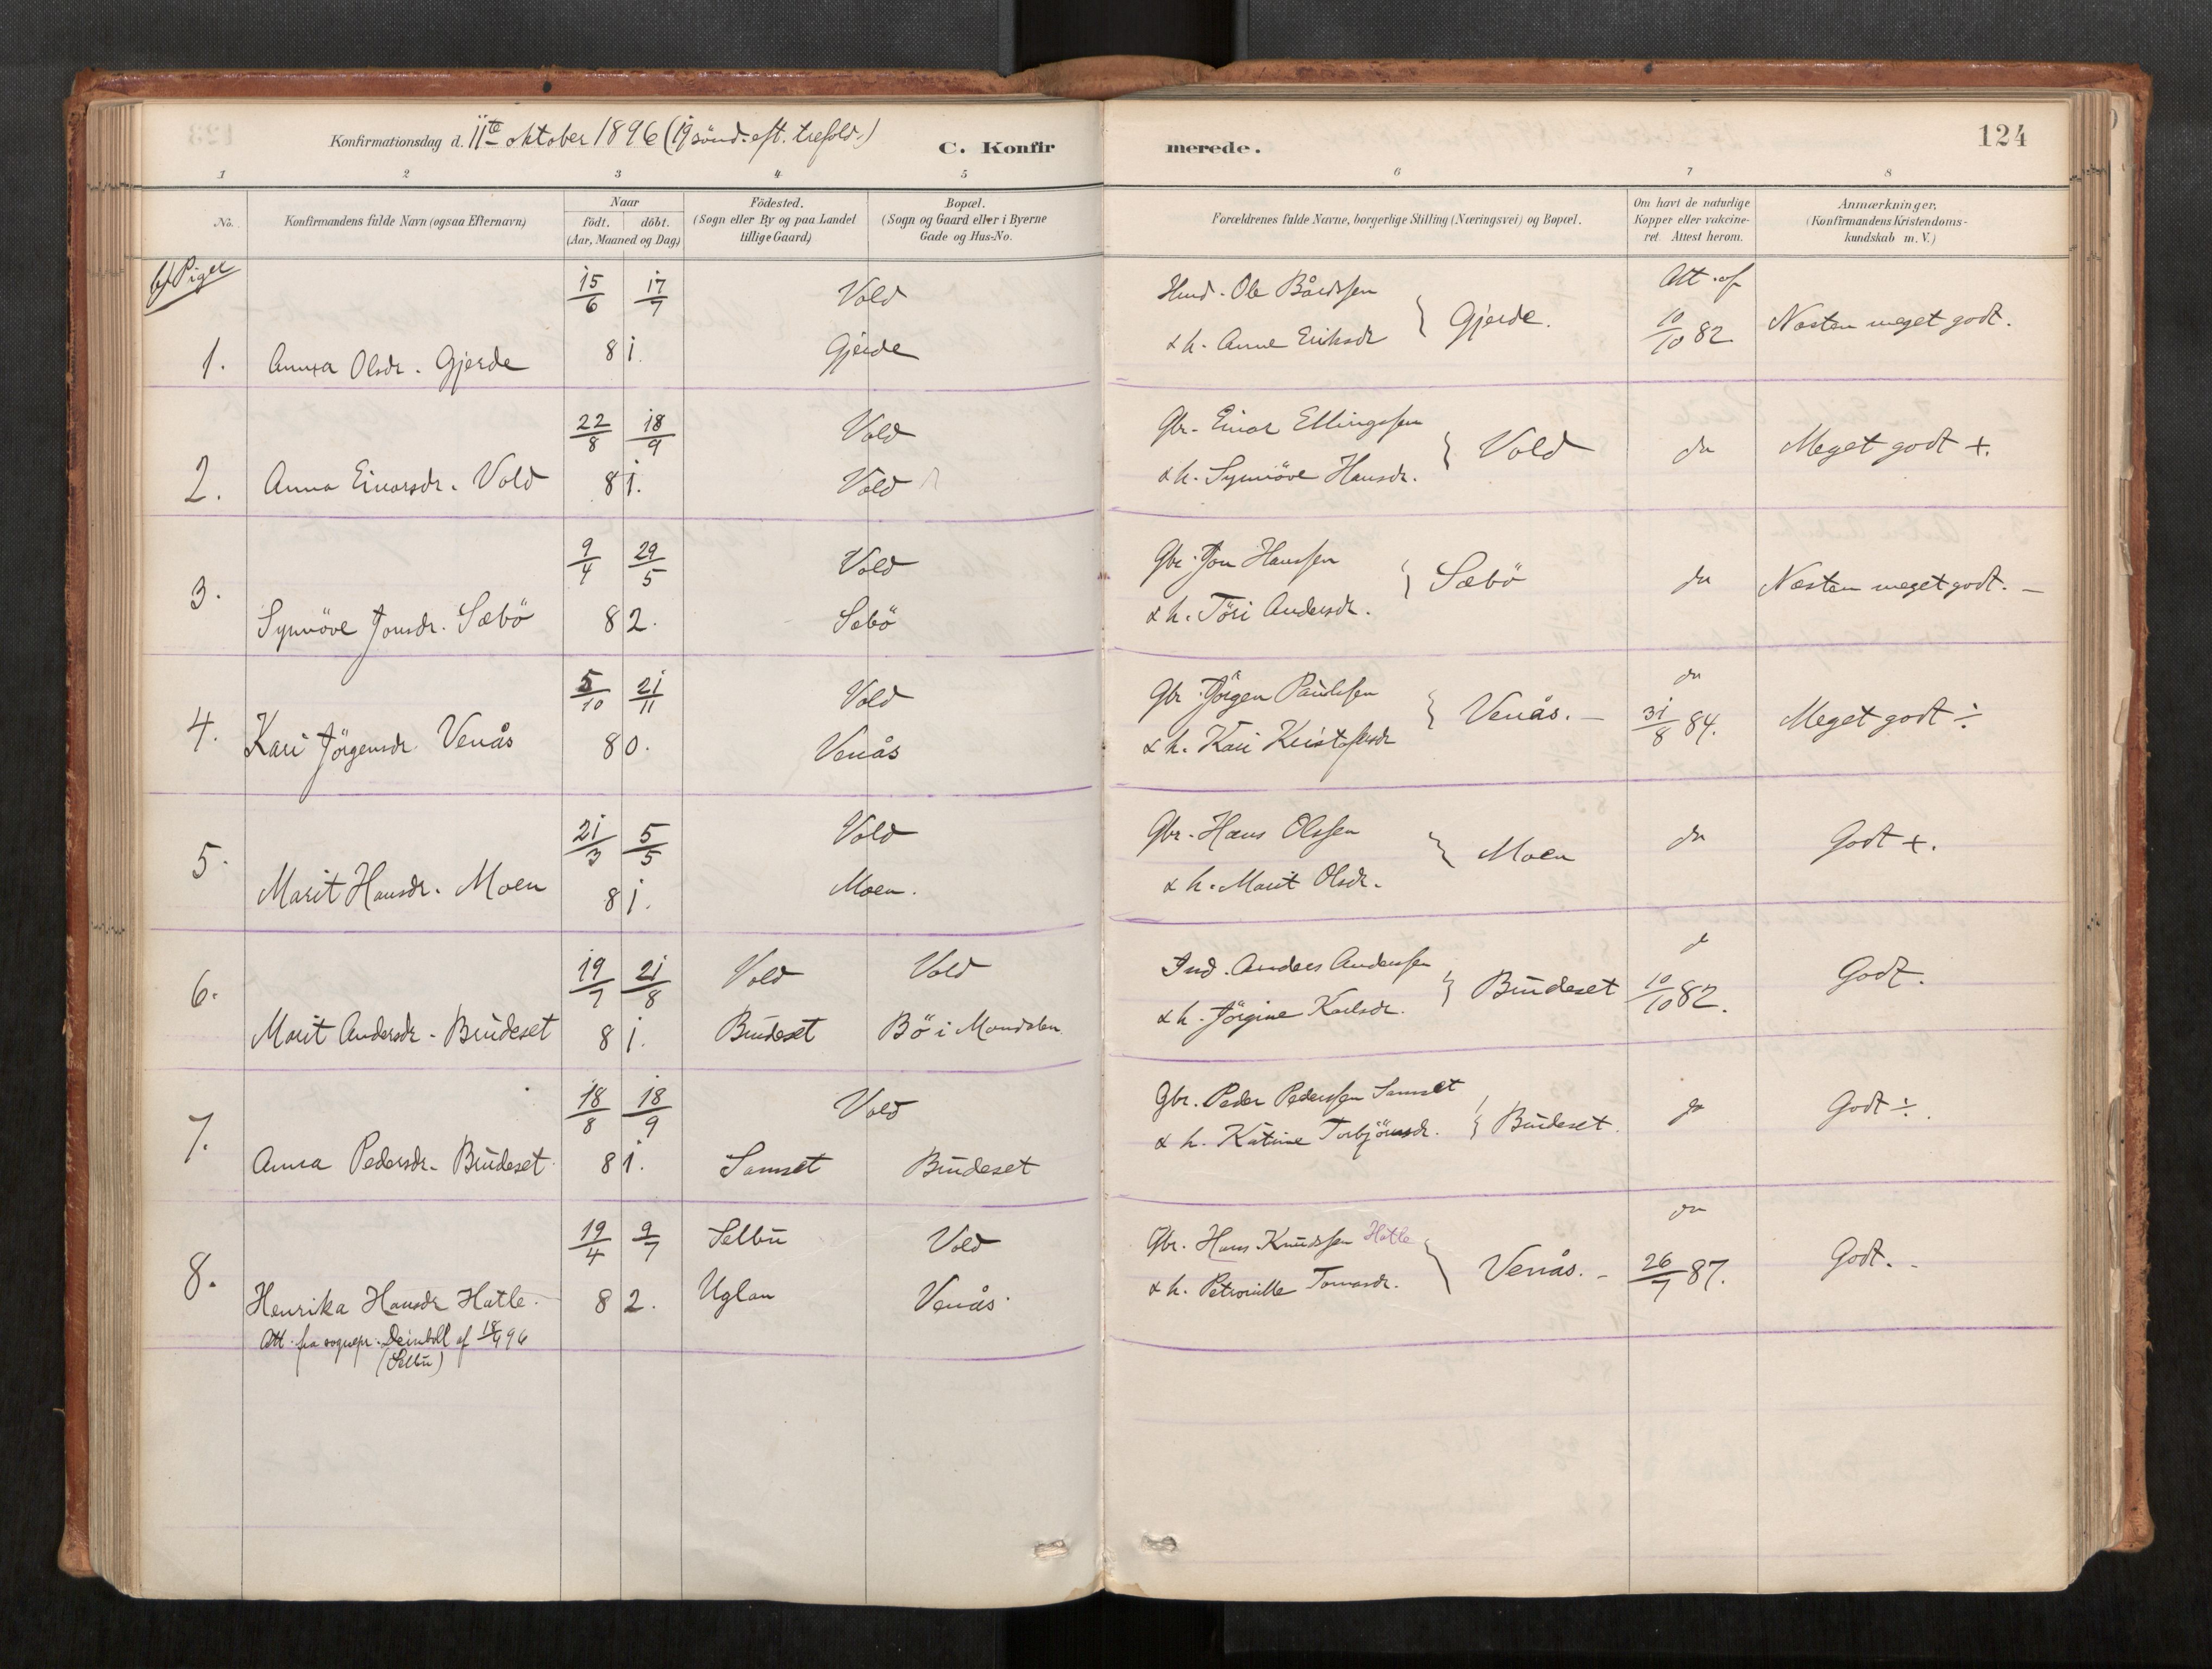 Konfirmationsdag d. 11te oktober 1896 (19 sönd. eft. trefold.)
C. Konfirmerede.
124
1 2 3 4 5 6 7 8
No.
Konfirmandens fulde Navn (ogsaa Efternavn)
Naar
födt. döbt.
(Aar, Maaned og Dag)
Födested.
(Sogn eller By og paa Landet
tillige Gaard)
Bopæl.
(Sogn og Gaard eller i Byerne
Gade og Hus-No.
Forældrenes fulde Navne, borgerlige Stilling (Næringsvei) og Bopæl.
Om havt de naturlige
Kopper eller vakcine-
ret. Attest herom.
Anmærkninger,
(Konfirmandens Kristendoms-
kundskab m. V.)
b) Piger
15/6 17/7 Vold
1. Anna Olsdr. Gjerde 81. Gjerde
Husd. Ole Bårdssen
& h. Anne Eriksdr } Gjerde.
Att. af
10/10 82
Næsten meget godt.
22/8 18/9 Vold
2. Anna Einarsdr. Vold 81. Vold
Gbr. Einar Ellingssen
& h. Synnöve Hansdr. } Vold
do
Meget godt +.
9/4 29/5 Vold
3. Synnöve Jonsdr. Sæbö 82. Sæbö
Gbr. Jon Hanssen
& h. Töri Andersdr. } Sæbö
do
Næsten meget godt. –
5/10 21/11 Vold
4. Kari Jörgensdr. Venås 80. Venås
Gbr. Jörgen Paulssen
& h. Kari Kristofersdr } Venås. –
do
31/8 84.
Meget godt ÷
21/3 5/5 Vold
5. Marit Hansdr. Moen 81. Moen.
Gbr. Hans Olssen
& h. Marit Olsdr. } Moen
do
Godt +.
19/7 21/8 Vold Vold
6. Marit Andersdr. Brudeset 81. Brudeset Bö i Mandalen
Ind. Anders Anderssen
& h. Jörgine Karlsdr. } Brudeset
do
10/10 82.
Godt.
18/8 18/9 Vold
7. Anna Pedersdr. Brudeset 81. Samset Brudeset
Gbr. Peder Pederssen Samset
& h. Katrine Torbjörnsdr. } Brudeset.
do
Godt ÷.
19/4 9/7 Selbu Vold
8. Henrika Hansdr Hatle. 82. Uglan Venås.
Att. fra sognepr. Deinboll af 18/9 96
(Selbu)
Gbr. Hans Knudssen Hatle
& h. Petronille Tomasdr. } Venås. –
do
26/7 87.
Godt. –